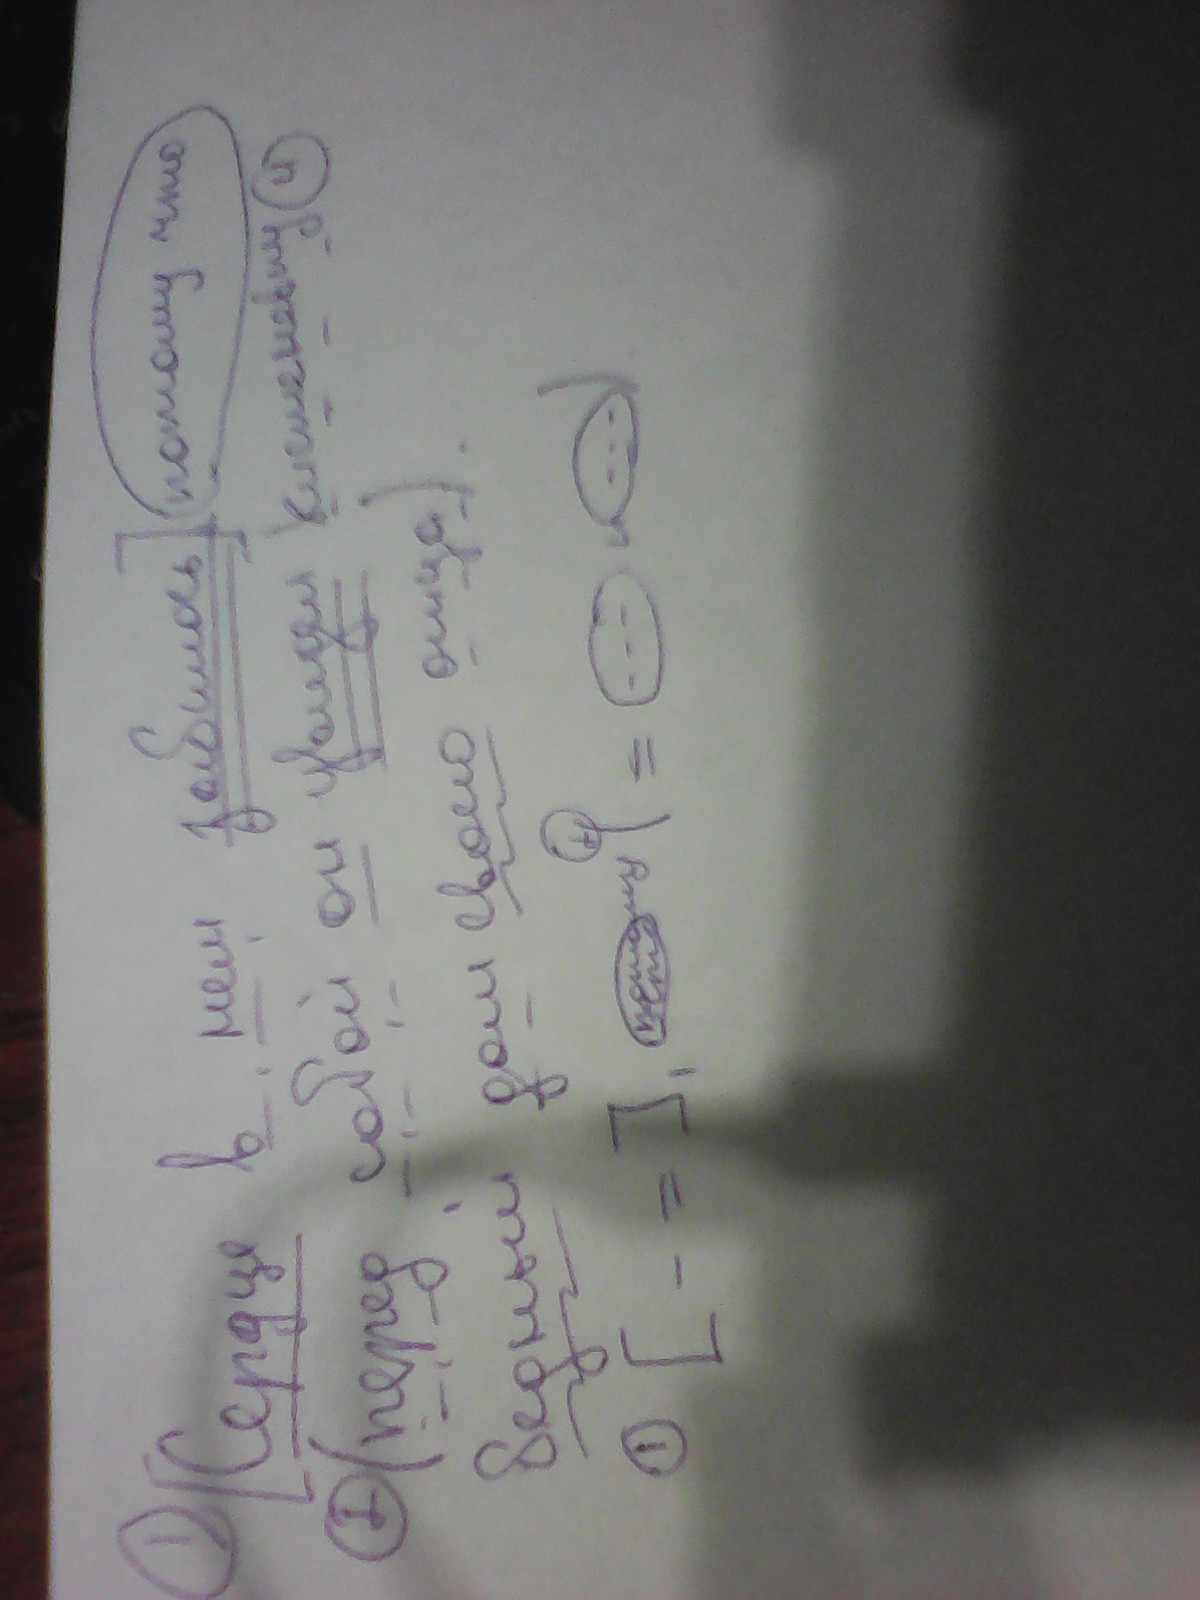 ① [Сердце в нем забилось] (потому что
② (перед собой он увидел Кистенёвку) и
бедный дом своего отца).
① [ - = ], потому что ( = и )